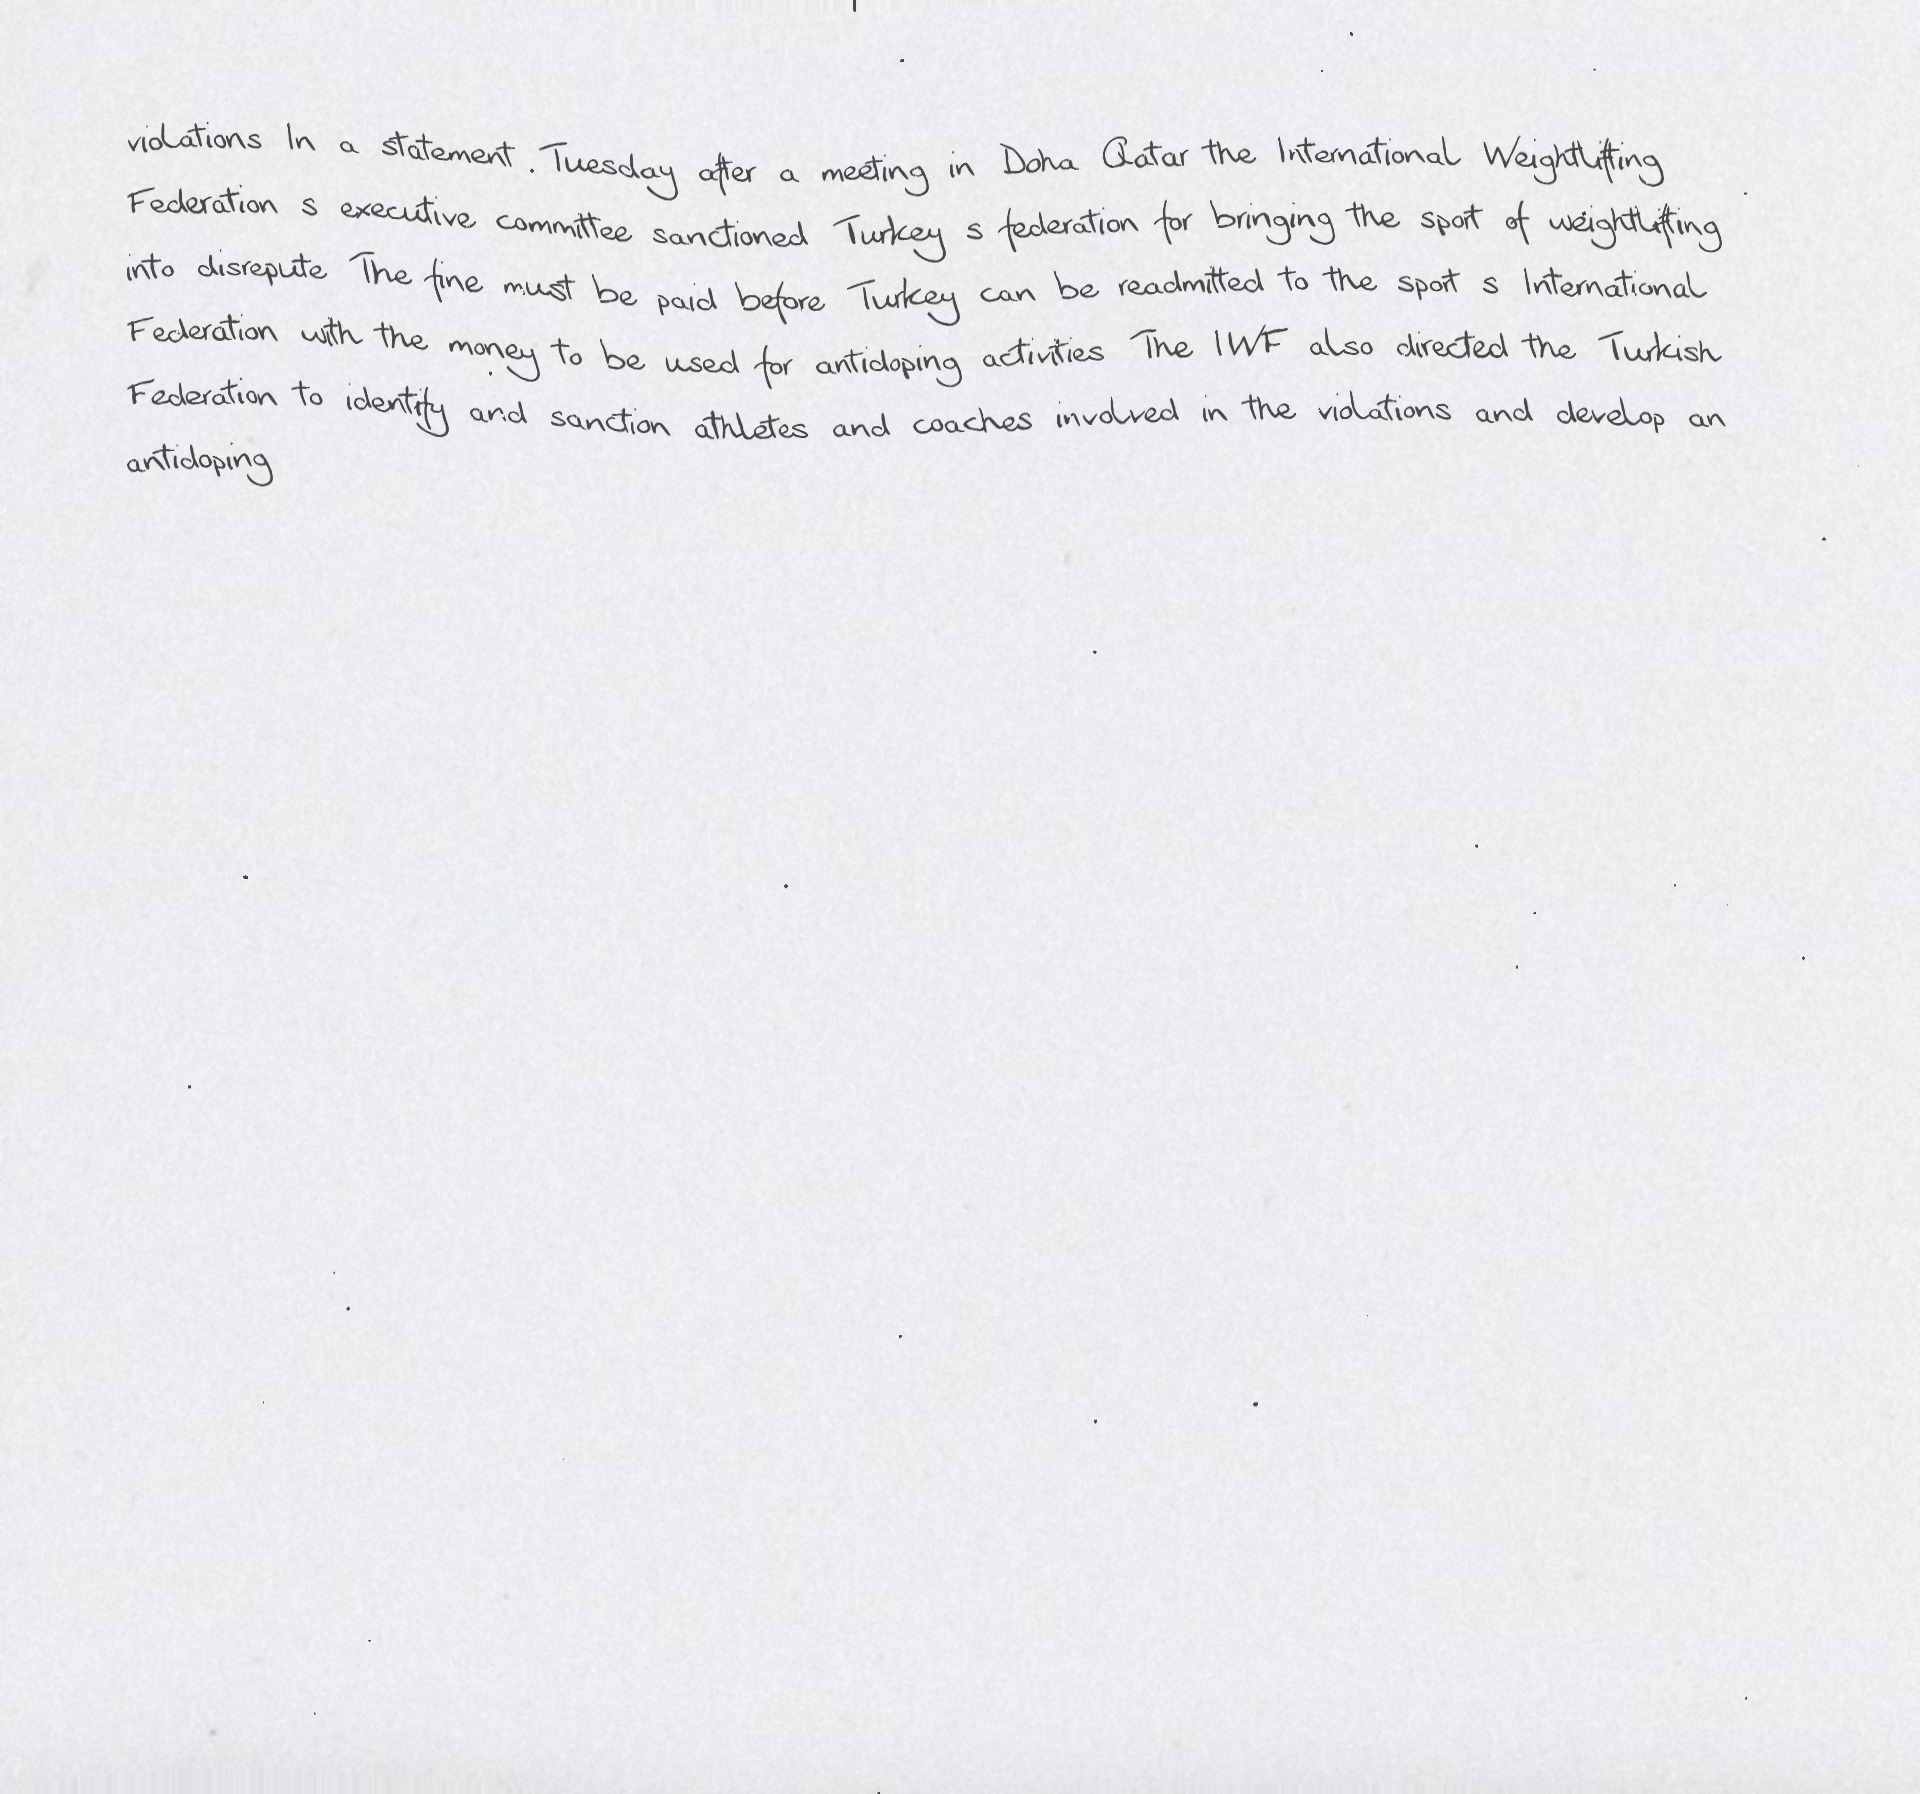 violations In a statement Tuesday after a meeting in Doha Qatar the International Weightlifting
Federation s executive committee sanctioned Turkey s federation for bringing the sport of weightlifting
into disrepute The fine must be paid before Turkey can be readmitted to the sport s International
Federation with the money to be used for antidoping activities The IWF also directed the Turkish
Federation to identify and sanction athletes and coaches involved in the violations and develop an
antidoping